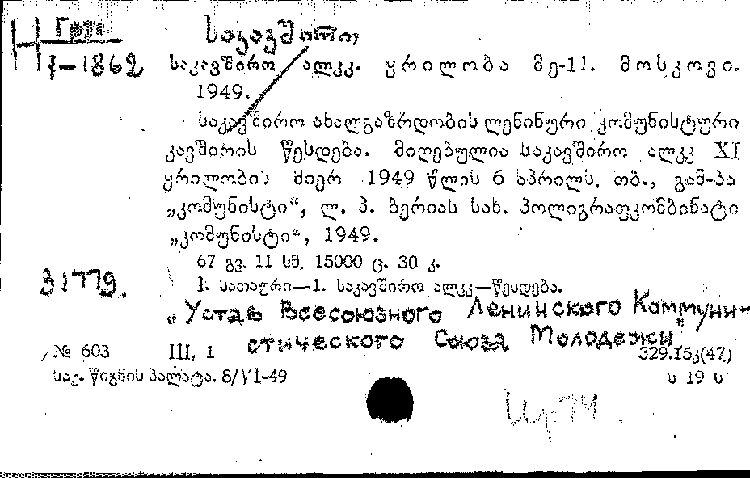 Груз
საკავშირო
I-1862
საკავშირო ალკკ. ყრილობა მე-11. მოსკოვი.
1949.
საკავშირო ახალგაზრდობის ლენინური კომუნისტური
კავშირის წესდება. მიღებულია საკავშირო ალკკ XI
ყრილობის მიერ 1949 წლის 6 აპრილს. თბ., გამ-ბა
„კომუნისტი“, ლ. პ. ბერიას სახ. პოლიგრაფკომბინატი
„კომუნისტი“, 1949.
67 გვ. 11 სმ. 15000 ც. 30 კ.
I. სათაური—1. საკავშირო ალკკ—წესდება.
31779.
„Устав Всесоюзного Ленинского Коммуни-
стического Союза Молодежи“
№ 603 III, 1 329.15კ(47)
საქ. წიგნის პალატა. 8/VI-49 ს 19 ს